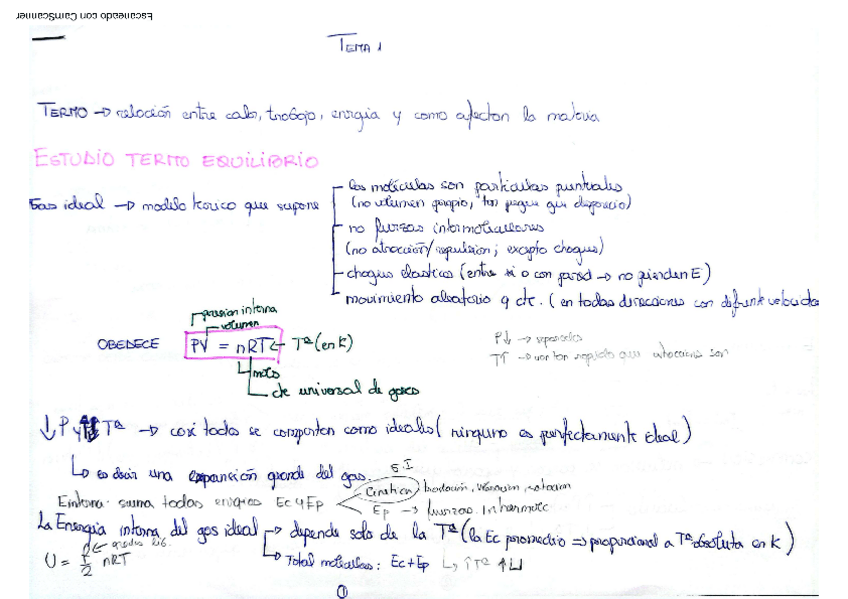 Escaneado con CamScanner
TEMA 1
TERMO → relación entre calor, trabajo, energia y como afectan la materia
ESTUDIO TERMO EQUILIBRIO
Gas ideal → modelo teorico que supone
las moléculas son particulas puntuales
(no volumen propio, tan peque que disprecio)
no fuerzas intermoleculares
(no atracción/repulsion; excepto choques)
choques elasticos (entre si o con pared → no pierden E)
movimiento aleatorio y cte. (en todas direcciones con difrente velocidad
presion interna
volumen
OBEDECE PV = nRT ← Tª (en K)
moles
cte universal de gases
P↓ → separadas
T↑ → van tan rapido que son
↓P y ↑↑ Tª → casi todos se comportan como ideales (ninguno es perfectamente ideal)
↳ es decir una expansión grande del gas
E interna: suma todas energias Ec y Ep
Cinetica
Ep → fuerzas
La Energia interna del gas ideal → depende solo de la Tª (la Ec promedio ⇒ proporcional a Tª absoluta en K)
grados lib.
U = f/2 nRT
Total moleculas: Ec + Ep ↳ ↑Tª ↑U
1